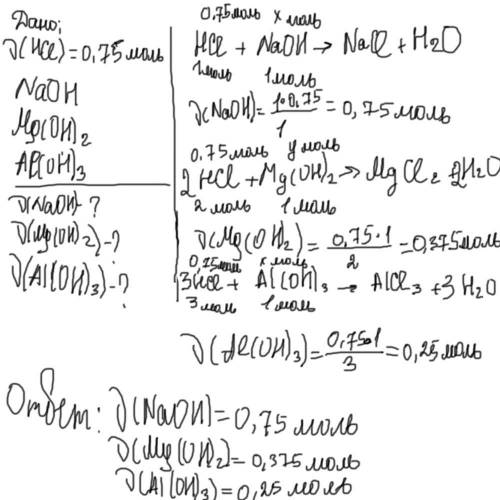 Дано:
ν(HCl)=0,75моль
NaOH
Mg(OH)2
Al(OH)3
ν(NaOH)-?
ν(Mg(OH)2)-?
ν(Al(OH)3)-?
0,75моль x моль
HCl + NaOH → NaCl + H2O
1моль 1моль
ν(NaOH)=1·0,75/1=0,75моль
0.75моль y моль
2HCl+Mg(OH)2→MgCl2 2H2O
2 моль 1 моль
ν(Mg(OH2)=0,75·1/2=0,375моль
0,75моль x моль
3HCl+ Al(OH)3 → AlCl3 +3H2O
3 моль 1 моль
ν(Al(OH)3)=0,75·1/3=0,25моль
Ответ: ν(NaOH)=0,75 моль
ν(Mg(OH)2)=0,375моль
ν(Al(OH)3)=0,25моль